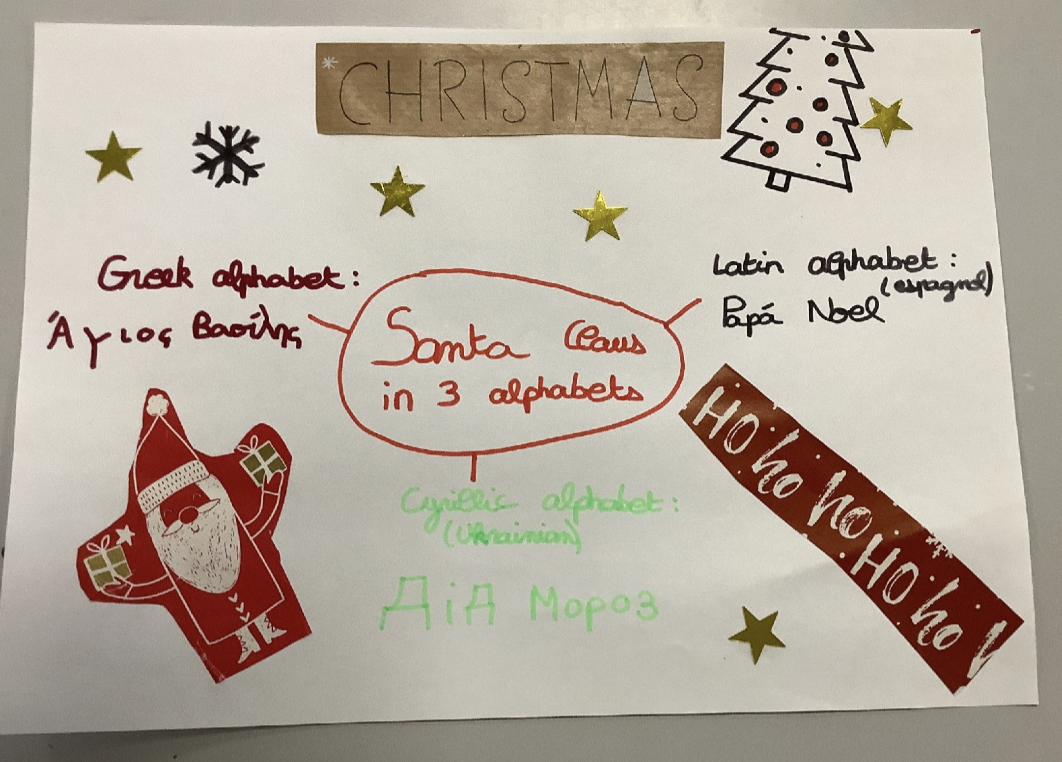 CHRISTMAS
Greek alphabet:
Άγιος Βασίλης
Latin alphabet:
(espagnol)
Papá Noel
Santa Claus
in 3 alphabets
HO ho ho HO ho
Cyrillic alphabet:
(Ukrainian)
Дід Мороз